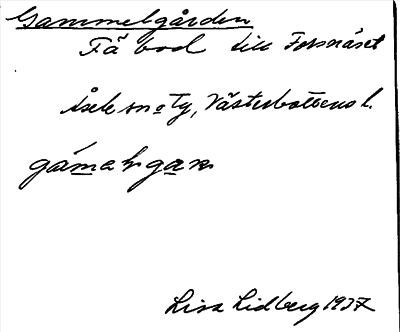 Gammelgården
Fäbod till Forsnäset
Åsele sn o Ty, Västerbottens l.
Lisa Lidberg 1937